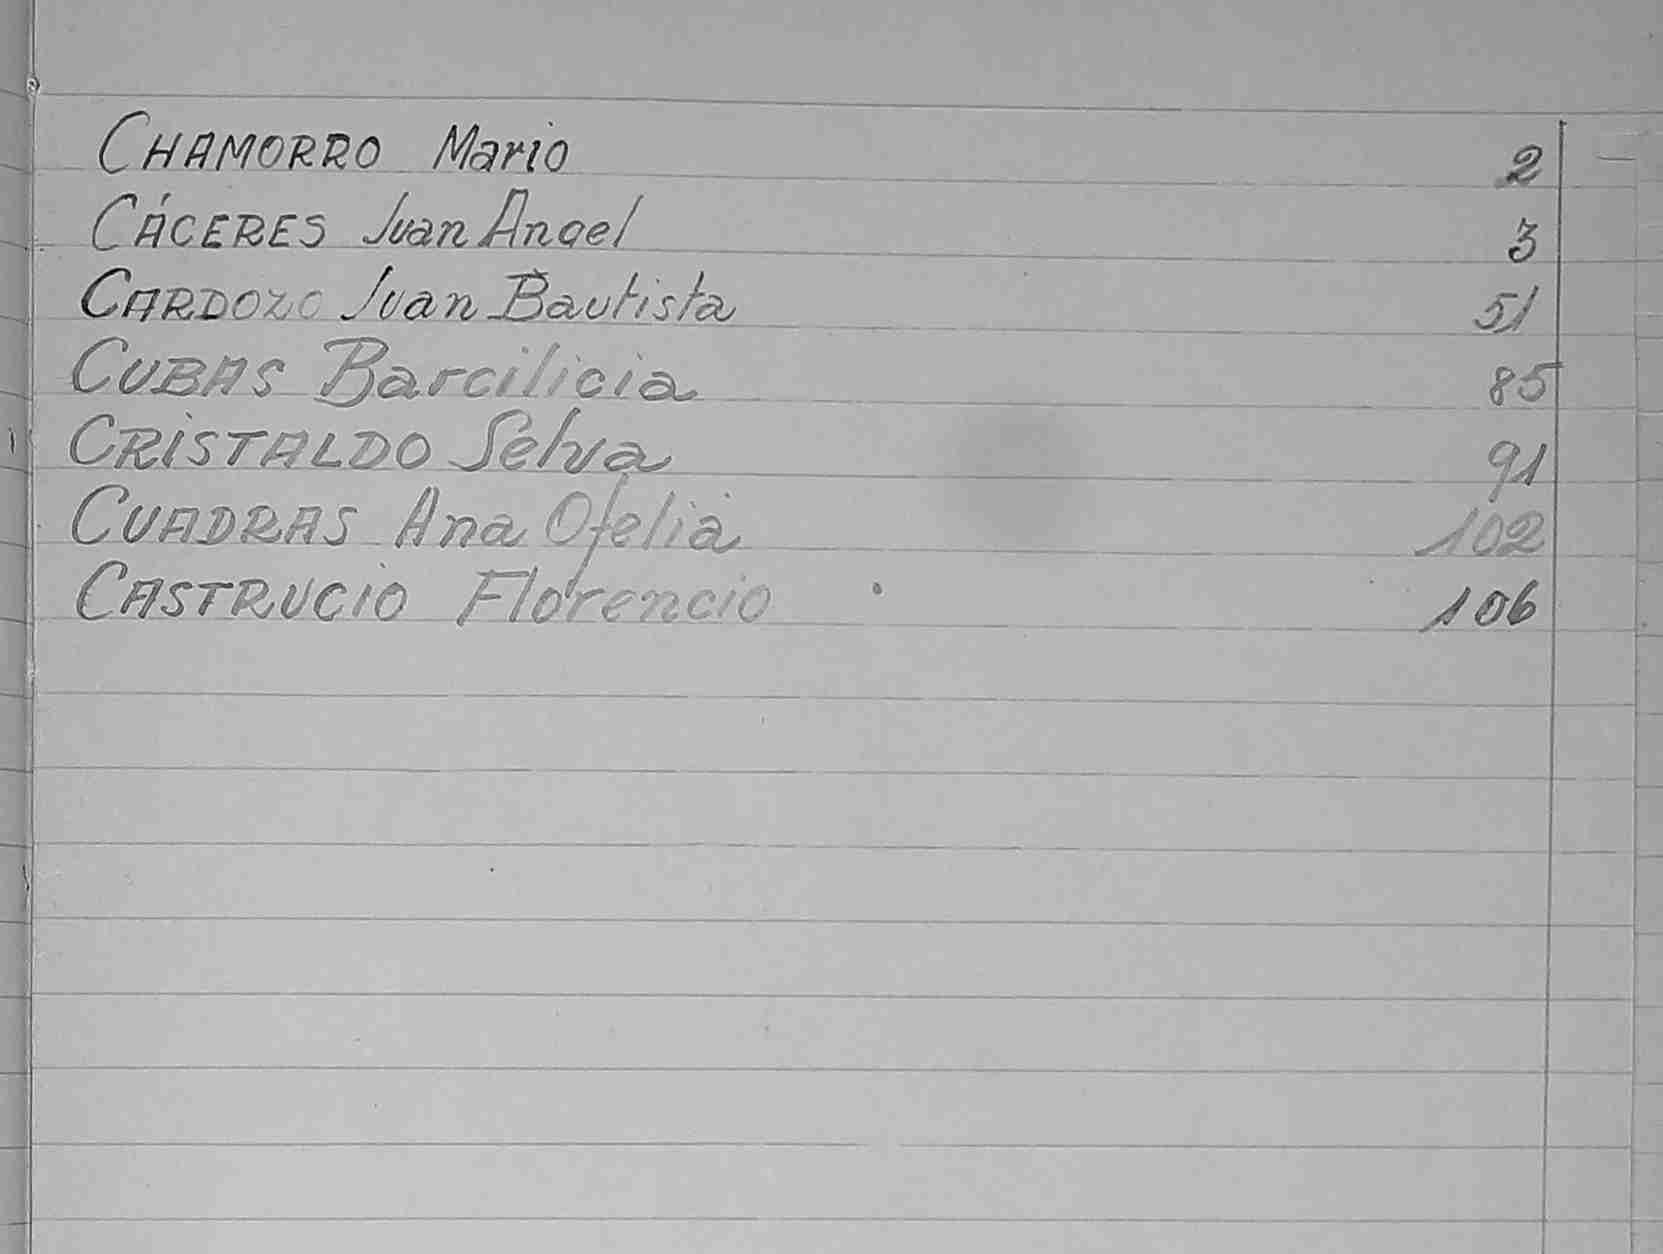 CHAMORRO Mario 2
CÁCERES Juan Angel 3
CARDOZO Juan Bautista 51
CUBAS Barcilicia 85
CRISTALDO Selva 91
CUADRAS Ana Ofelia 102
CASTRUCIO Florencio 106